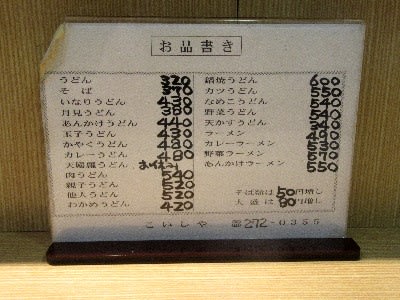 お品書き
うどん 320
そば 370
いなりうどん 430
月見うどん 380
あんかけうどん 440
玉子うどん 430
かやくうどん 480
カレーうどん 480
天婦羅うどん
肉うどん 540
親子うどん 520
他人うどん 520
わかめうどん 420
鍋焼うどん 600
カツうどん 550
なめこうどん 540
野菜うどん 540
天かすうどん
ラーメン
カレーラーメン
野菜ラーメン 570
あんかけラーメン 550
そば類は50円増し
大盛は80円増し
こいしや ☎272-0355